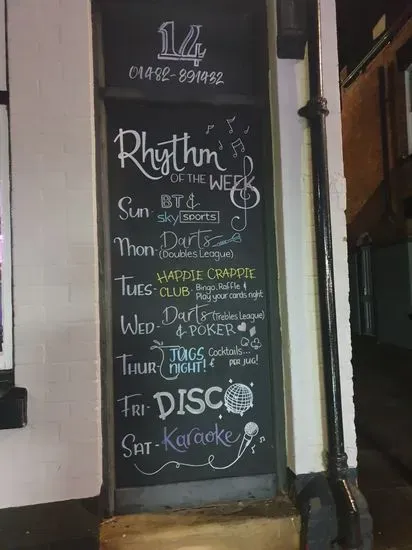 14
01482-891432
Rhythm
OF THE WEEK
SUN- BT &
sky sports
MON- Darts
(Doubles League)
TUES- HAPPIE CRAPPIE
CLUB- Bingo, Raffle &
Play your cards right
WED- Darts (Trebles League)
& POKER
THUR- JUGS Cocktails...
NIGHT! £ PER JUG!
FRI- DISCO
SAT- Karaoke